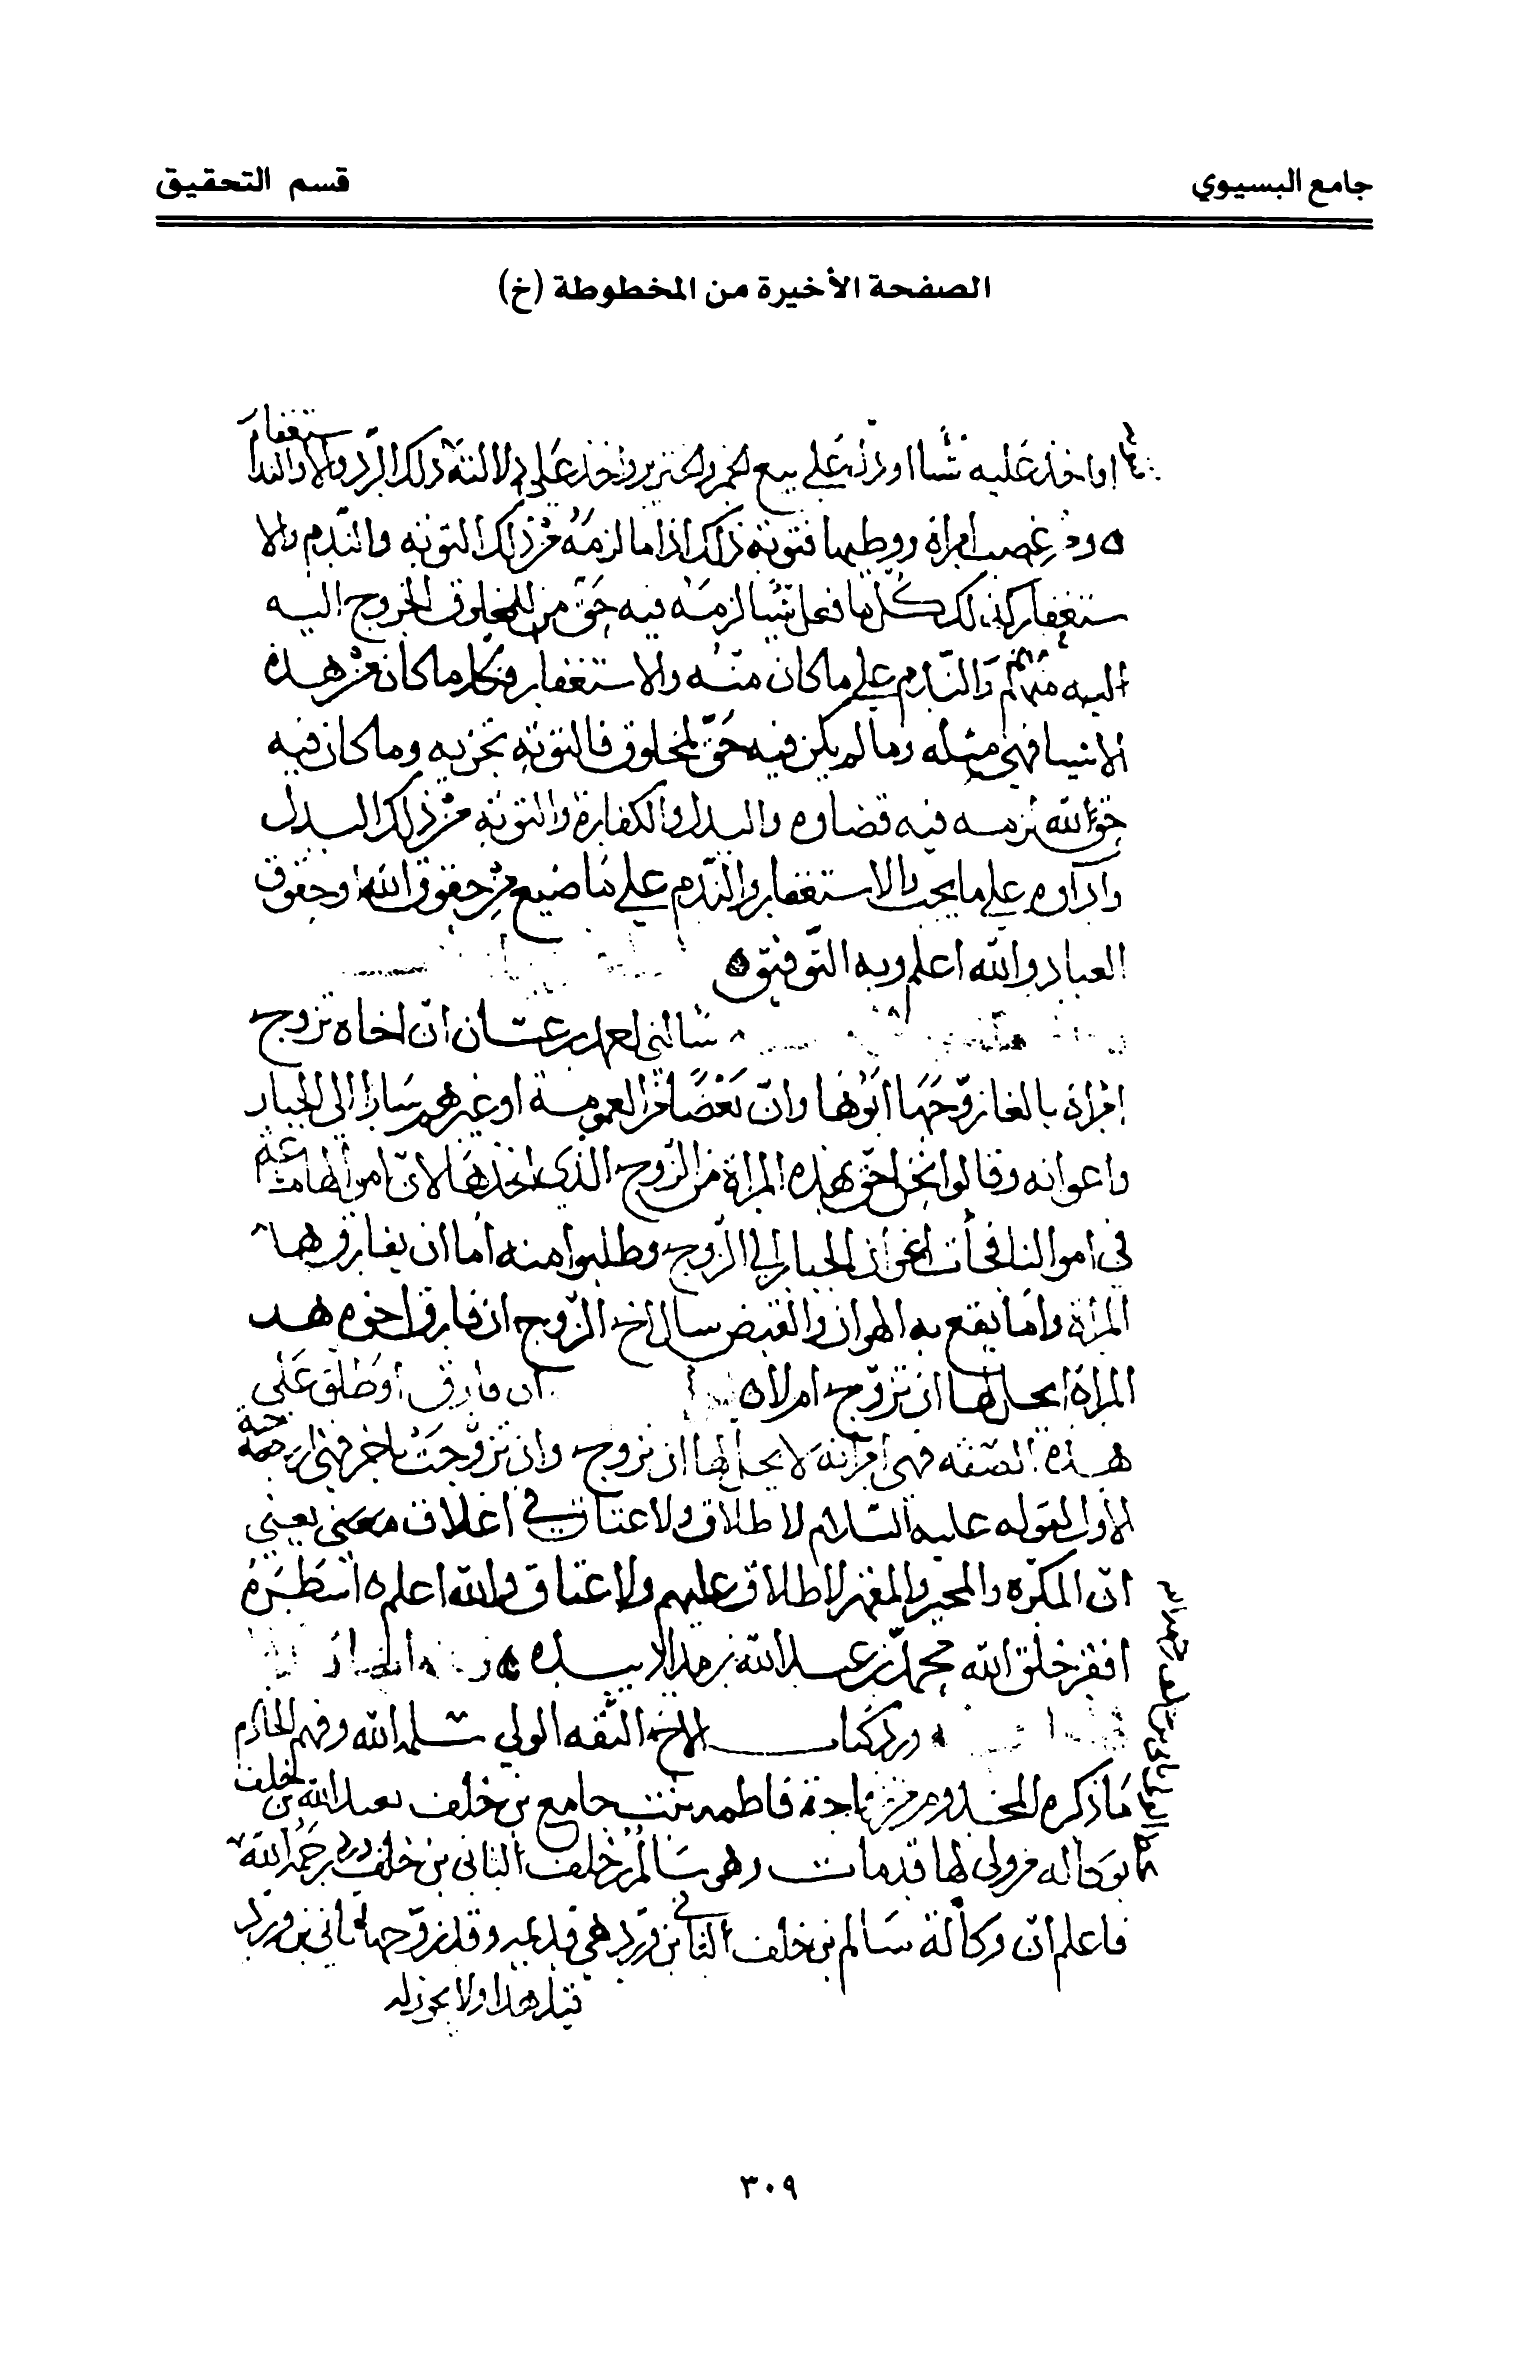 جامع البسيوي
قسم التحقيق
الصفحة الأخيرة من المخطوطة (خ)
او اخذ عليه شيا او دله على بيع الخمر والخنزير واخذ على دلالته ذلك الرد والا والندا ستغفار
امراة ووطيها فتوبة ذلك اذا ما لزمه من ذلك التوبه والندم والا
ستغفار كذلك كل ما فعل شيا لزمه فيه حق من المخلوق الخروج اليه
اليه منه والندم على ما كان منه والاستغفار فكلما كان من هذه
الاشيا فهي مثله وما لم يكن فيه حق لمخلوق فالتوبه تجزيه وما كان فيه
حق الله لزمه فيه قضاوه والبدل والكفارة والتوبه من ذلك البدل
واداوه على ما يجب والاستغفار والندم على ما ضيع من حقوق الله او حقوق
العباد والله اعلم وبه التوفيق
سالني عثمان ان اخاه تزوج
امراة بالغا زوجها ابوها وان بعضا من العمومة او غيرهم سارا الى الجبار
واعوانه وقالوا نحن احق بهذه المراة من الزوج الذي اخذها لان اموالها
في اموالنا فجأت اعوان الجبار الى الزوج وطلبوا منه اما ان يفارقها
المراة واما يقع به الهوان والقبض سال اخ الزوج ان فارق اخوه هذ
المراة ايحل لها ان تزوج ام لا ان فارق او طلق على
هذه الصفه فهي امراته لا يحل لها ان تزوج وان تزوجت باخر فهي زوجة
الاول لقوله عليه السلام لا طلاق ولا عتاق في اغلاق معنى يعني
ان المكره والمجبر والمقهر لا طلاق عليهم ولا عتاق والله اعلم
افقر خلق الله محمد بن عبدالله بن مداد بيده
ورد كتاب الاخ الثقه الولي سلمه الله وفهم الخادم
ما ذكره المخدوم من فاطمه بنت جامع بن خلف بن عبدالله بن خلف
بوكاله من ولي لها قد مات وهو سالم بن خلف رحمه الله
فاعلم ان وكالة سالم بن خلف هي قديمه وقد زوجها
قبل هذا ولا يجوز له
٣٠٩